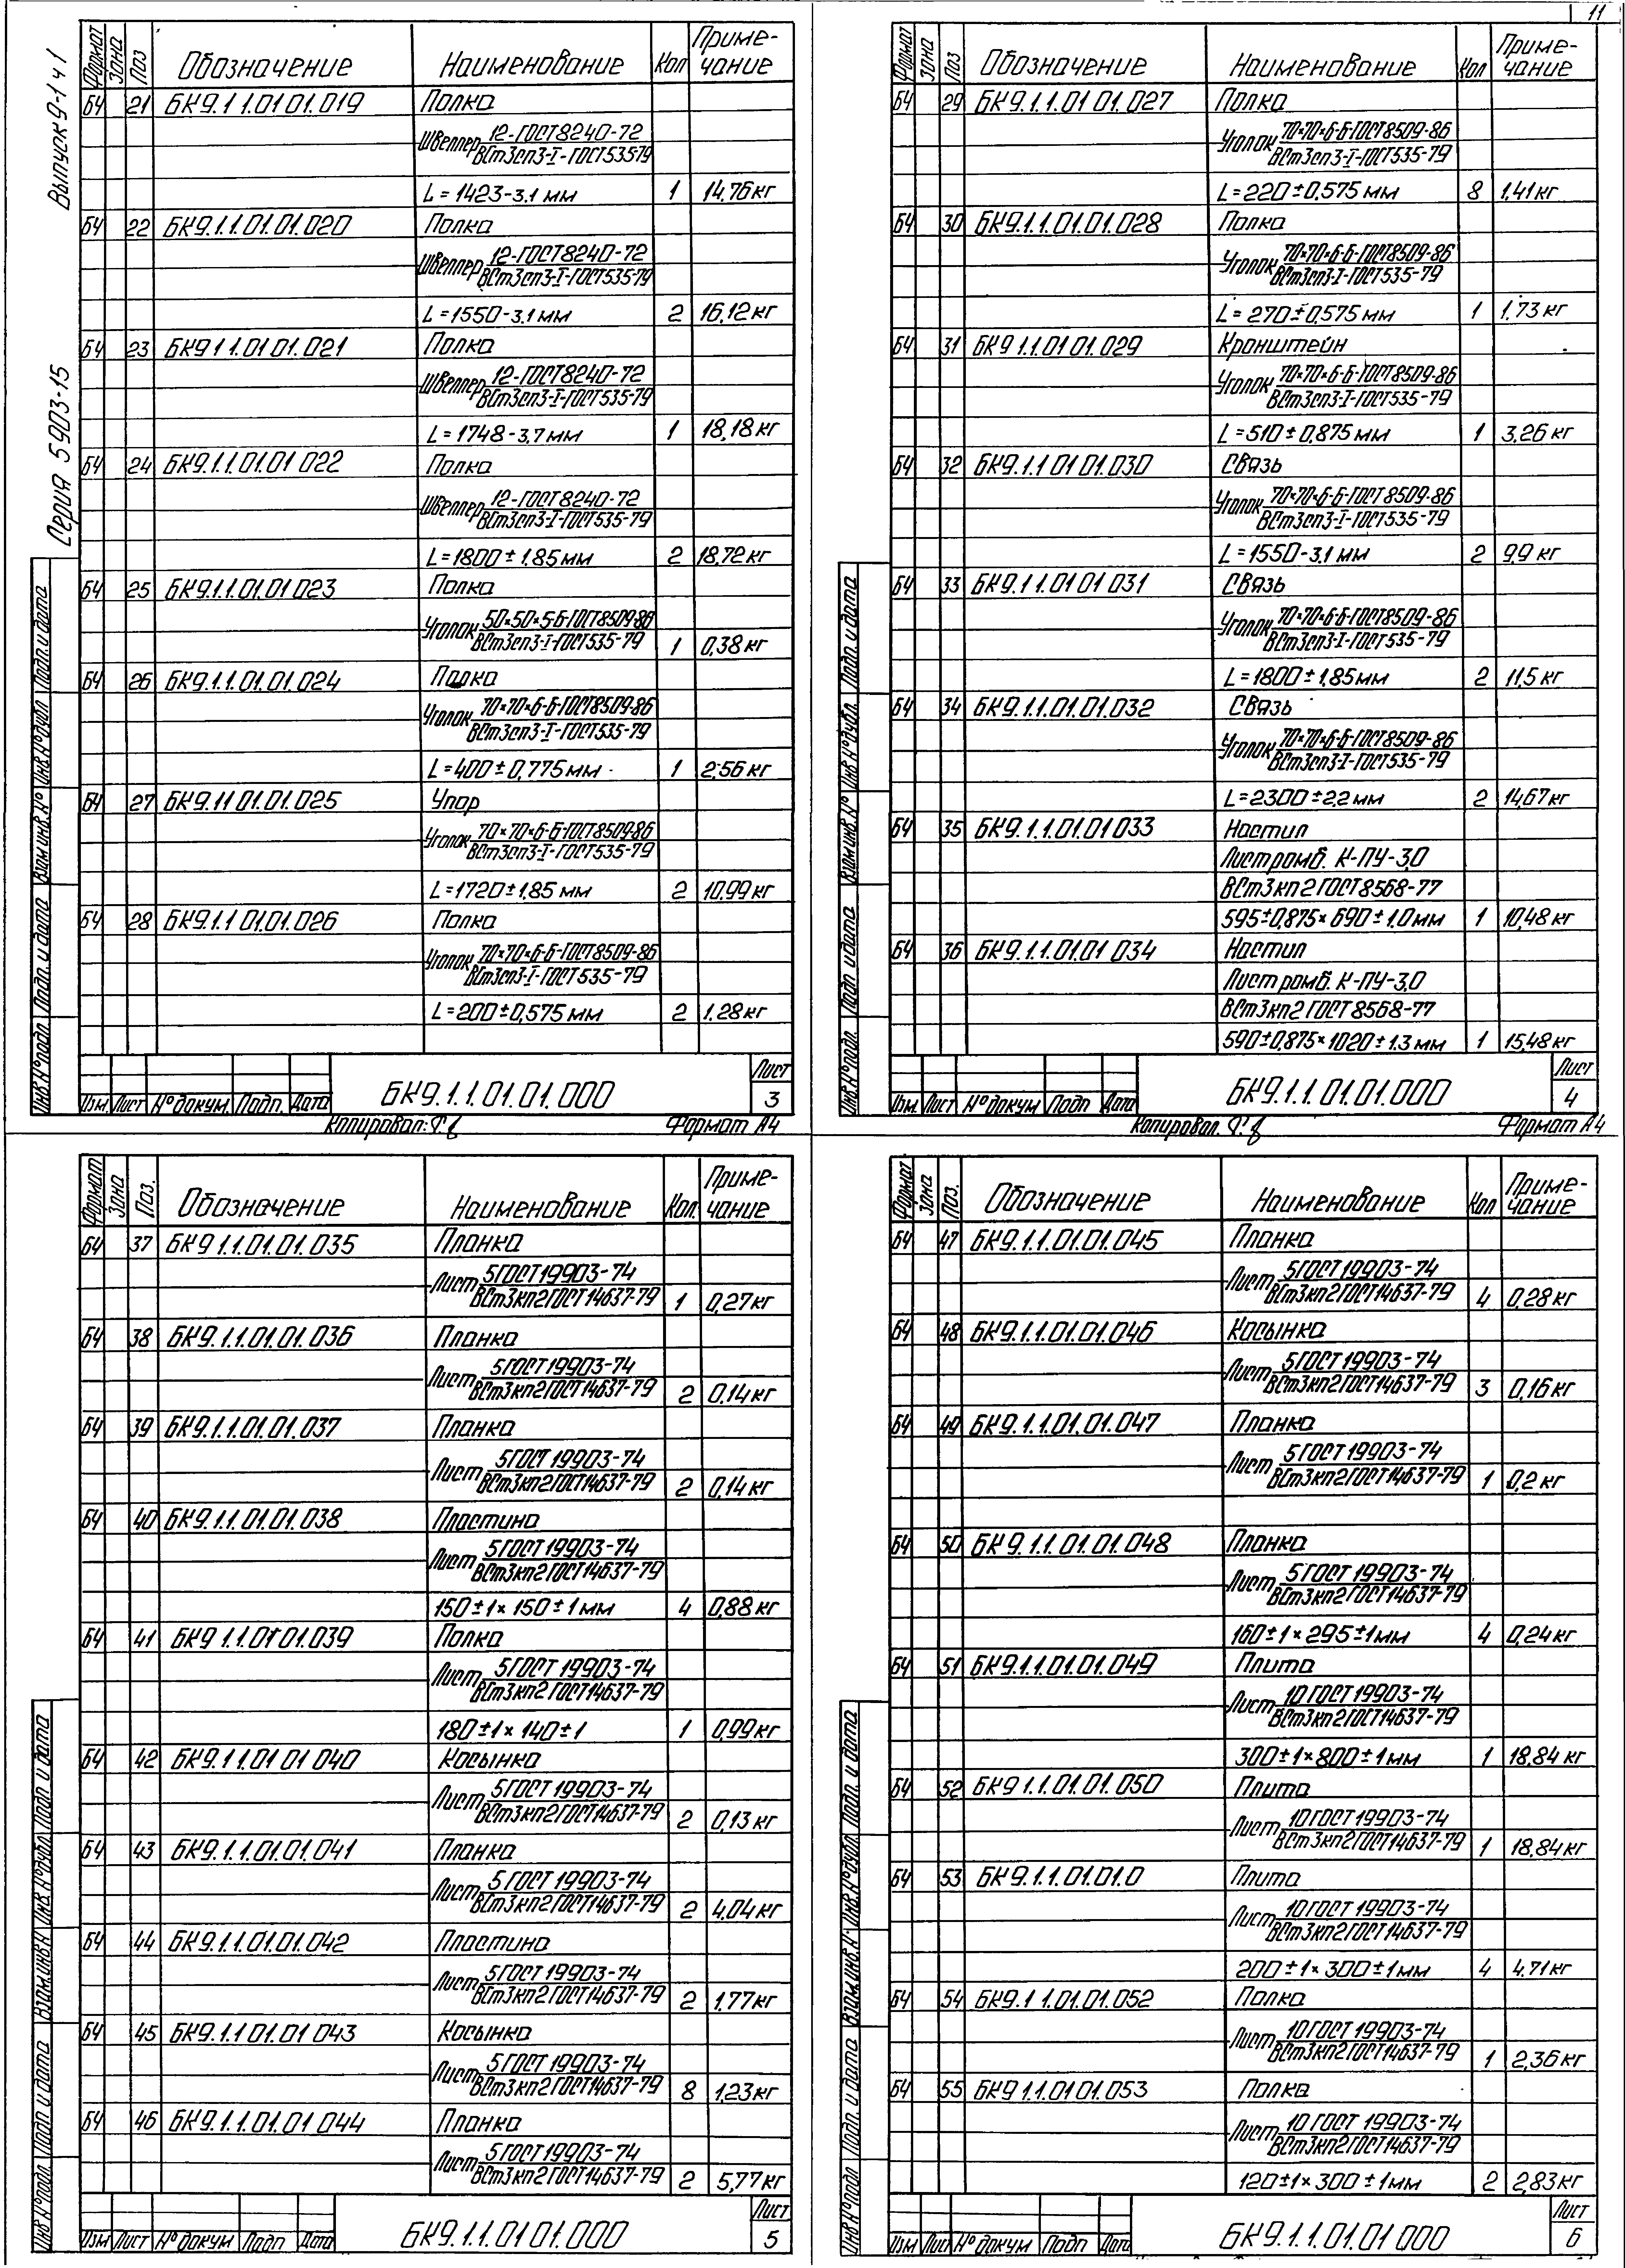 11
Выпуск 9-1 ч 1
Серия 5.903-15
Формат Зона Поз Обозначение Наименование Кол Приме-
чание
БЧ 21 БК9.1 1.01 01.019 Полка
Швеллер 12-ГОСТ 8240-72
ВСт3сп3-I-ГОСТ535-79
L=1423-3.1 мм 1 14,76кг
БЧ 22 БК9.1.1.01.01.020 Полка
Швеллер 12-ГОСТ 8240-72
ВСт3сп3-I-ГОСТ535-79
L=1550-3.1 мм 2 16,12 кг
БЧ 23 БК9 1 1.01 01.021 Полка
Швеллер 12-ГОСТ 8240-72
ВСт3сп3-I-ГОСТ535-79
L=1748-3,7 мм 1 18,18 кг
БЧ 24 БК9.1.1.01.01 022 Полка
Швеллер 12-ГОСТ 8240-72
ВСт3сп3-I-ГОСТ535-79
L=1800±1.85 мм 2 18,72 кг
БЧ 25 БК9.1.1.01.01 023 Полка
Уголок 50×50×5-Б-ГОСТ8509-86
ВСт3сп3-I-ГОСТ535-79 1 0,38 кг
БЧ 26 БК9.1.1.01.01.024 Полка
Уголок 70×70×6-Б-ГОСТ8509-86
ВСт3сп3-I-ГОСТ535-79
L=400±0,775мм 1 2,56 кг
БЧ 27 БК9.11 01.01.025 Упор
Уголок 70×70×6-Б-ГОСТ8509-86
ВСт3сп3-I-ГОСТ535-79
L=1720±1,85 мм 2 10,99 кг
БЧ 28 БК9.1.1 01.01.026 Полка
Уголок 70×70×6-Б-ГОСТ8509-86
ВСт3сп3-I-ГОСТ535-79
L=200±0,575 мм 2 1.28 кг
Инв.№ подл. Подп. и дата Взам инв.№ Инв.№ дубл Подп. и дата
Изм. Лист № докум. Подп. Дата БК9.1.1.01.01.000 Лист
3
Копировал: Формат А4
Формат Зона Поз Обозначение Наименование Кол Приме-
чание
БЧ 29 БК9.1.1.01 01.027 Полка
Уголок 70×70×6-Б-ГОСТ8509-86
ВСт3сп3-I-ГОСТ535-79
L=220±0,575 мм 8 1,41кг
БЧ 30 БК9.1.1.01.01.028 Полка
Уголок 70×70×6-Б-ГОСТ8509-86
ВСт3сп3-I-ГОСТ535-79
L=270±0,575 мм 1 1,73 кг
БЧ 31 БК9 1.1.01 01.029 Кронштейн
Уголок 70×70×6-Б-ГОСТ8509-86
ВСт3сп3-I-ГОСТ535-79
L=510±0,875 мм 1 3,26 кг
БЧ 32 БК9.1.1 01 01.030 Связь
Уголок 70×70×6-Б-ГОСТ8509-86
ВСт3сп3-I-ГОСТ535-79
L=1550-3,1 мм 2 9,9 кг
БЧ 33 БК9.1 1.01 01 031 Связь
Уголок 70×70×6-Б-ГОСТ8509-86
ВСт3сп3-I-ГОСТ535-79
L=1800±1,85мм 2 11,5 кг
БЧ 34 БК9.1.1.01.01.032 Связь
Уголок 70×70×6-Б-ГОСТ8509-86
ВСт3сп3-I-ГОСТ535-79
L=2300±2,2 мм 2 14,67кг
БЧ 35 БК9.1.1.01.01 033 Настил
Лист ромб. К-ПУ-3,0
ВСт3кп2 ГОСТ8568-77
595±0,875×690±1.0мм 1 10,48 кг
БЧ 36 БК9.1.1.01.01 034 Настил
Лист ромб. К-ПУ-3,0
ВСт3кп2 ГОСТ8568-77
590±0,875×1020±1.3 мм 1 15,48кг
Инв.№ подл. Подп и дата Взам инв.№ Инв.№ дубл. Подп. и дата
Изм. Лист № докум Подп Дата БК9.1.1.01.01.000 Лист
4
Копировал. Формат А4
Формат Зона Поз. Обозначение Наименование Кол. Приме-
чание
БЧ 37 БК9 1.1.01.01.035 Планка
Лист 5 ГОСТ 19903-74
ВСт3кп2 ГОСТ 14637-79 1 0,27кг
БЧ 38 БК9.1.1.01.01.036 Планка
Лист 5 ГОСТ 19903-74
ВСт3кп2 ГОСТ 14637-79 2 0,14кг
БЧ 39 БК9.1.1.01.01.037 Планка
Лист 5 ГОСТ 19903-74
ВСт3кп2 ГОСТ 14637-79 2 0,14кг
БЧ 40 БК9.1.1.01.01.038 Пластина
Лист 5 ГОСТ 19903-74
ВСт3кп2 ГОСТ 14637-79
150±1×150±1мм 4 0,88 кг
БЧ 41 БК9 1.1.01 01.039 Полка
Лист 5 ГОСТ 19903-74
ВСт3кп2 ГОСТ 14637-79
180±1×140±1 1 0,99кг
БЧ 42 БК9.1 1.01 01 040 Косынка
Лист 5 ГОСТ 19903-74
ВСт3кп2 ГОСТ 14637-79 2 0,13 кг
БЧ 43 БК9.1.1.01.01.041 Планка
Лист 5 ГОСТ 19903-74
ВСт3кп2 ГОСТ 14637-79 2 4,04 кг
БЧ 44 БК9.1.1.01.01.042 Пластина
Лист 5 ГОСТ 19903-74
ВСт3кп2 ГОСТ 14637-79 2 1,77кг
БЧ 45 БК9.1.1 01.01 043 Косынка
Лист 5 ГОСТ 19903-74
ВСт3кп2 ГОСТ 14637-79 8 1,23кг
БЧ 46 БК9.1.1.01.01 044 Планка
Лист 5 ГОСТ 19903-74
ВСт3кп2 ГОСТ 14637-79 2 5,77кг
Инв.№ подл Подп. и дата Взам.инв.№ Инв.№ дубл. Подп. и дата
Изм Лист № докум Подп Дата БК9.1.1.01 01.000 Лист
5
Формат Зона Поз. Обозначение Наименование Кол Приме-
чание
БЧ 47 БК9.1.1.01.01.045 Планка
Лист 5 ГОСТ 19903-74
ВСт3кп2 ГОСТ 14637-79 4 0,28кг
БЧ 48 БК9.1.1.01.01.046 Косынка
Лист 5 ГОСТ 19903-74
ВСт3кп2 ГОСТ 14637-79 3 0,16 кг
БЧ 49 БК9.1.1.01.01.047 Планка
Лист 5 ГОСТ 19903-74
ВСт3кп2 ГОСТ 14637-79 1 0,2 кг
БЧ 50 БК9.1.1.01.01.048 Планка
Лист 5 ГОСТ 19903-74
ВСт3кп2 ГОСТ 14637-79
160±1×295±1мм 4 0,24кг
БЧ 51 БК9.1.1.01.01.049 Плита
Лист 10 ГОСТ 19903-74
ВСт3кп2 ГОСТ 14637-79
300±1×800±1мм 1 18,84 кг
БЧ 52 БК9 1.1.01.01.050 Плита
Лист 10 ГОСТ 19903-74
ВСт3кп2 ГОСТ 14637-79 1 18,84 кг
БЧ 53 БК9.1.1.01.01.0 Плита
Лист 10 ГОСТ 19903-74
ВСт3кп2 ГОСТ 14637-79
200±1×300±1мм 4 4.71кг
БЧ 54 БК9.1 1.01.01.052 Полка
Лист 10 ГОСТ 19903-74
ВСт3кп2 ГОСТ 14637-79 1 2,36 кг
БЧ 55 БК9 1.1.01 01.053 Полка
Лист 10 ГОСТ 19903-74
ВСт3кп2 ГОСТ 14637-79
120±1×300±1мм 2 2,83 кг
Инв.№ подл Подп. и дата Взам.инв.№ Инв.№ дубл Подп. и дата
Изм Лист № докум Подп Дата БК9.1.1.01.01 000 Лист
6